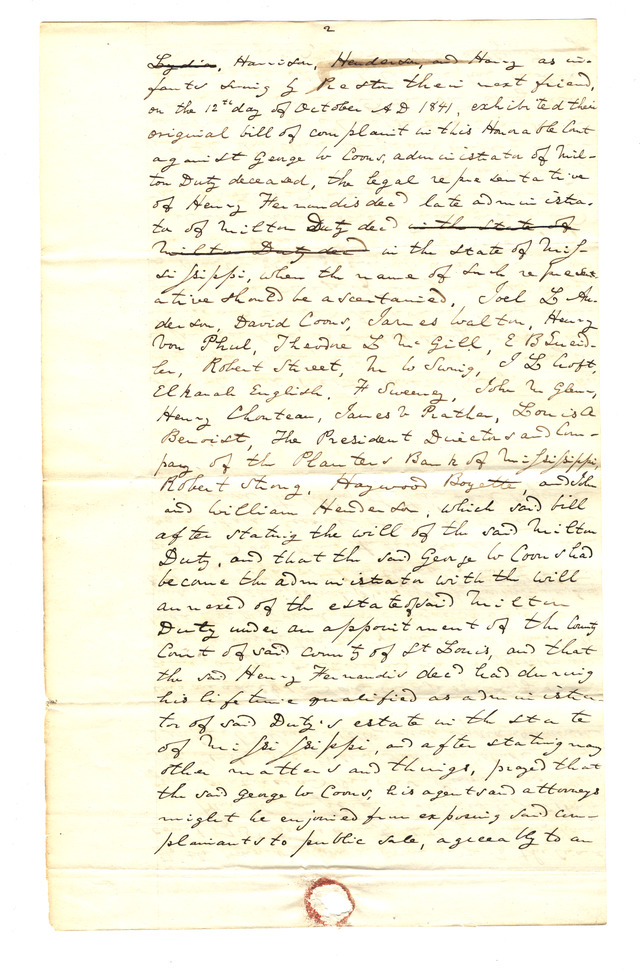 2
Lydia, Harrison, Henderson, and Henry as in-
fants suing by Preston their next friend,
on the 12th day of October A D 1841, exhibited their
original bill of complaint in this Honorable Court
against George W Coons, administrator of Mil-
ton Duty deceased, the legal representative
of Henry Fernandis decd late administra-
tor of Milton Duty decd in the state of
Milton Duty decd in the state of Mis-
sissippi, when the name of such represent
ative should be ascertained, Joel L An-
derson, David Coons, James Walton, Henry
Von Phul, Theodore L McGill, E B
Robert Street, M W Swing, J L Croft,
Elkanah English, F Sweeney, John M Glenn,
Henry Chouteau, James V Prather, Louis A
Benoist, The President Directors and Com-
pany of the Planters Bank of Mississippi,
Robert Strong, Haywood Boyette, and John
and William Henderson, which said bill
after stating the will of the said Milton
Duty, and that the said George W Coons had
become the administrator with the will
annexed of the estate of said Milton
Duty under an appointment of the County
Court of said county of St Louis, and that
the said Henry Fernandis decd had during
his lifetime qualified as administra-
tor of said Duty's estate in the state
of Mississippi, and after stating many
other matters and things, prayed that
the said George W Coons, his agents and attorneys
might be enjoined from exposing said com-
plainants to public sale, agreeably to an